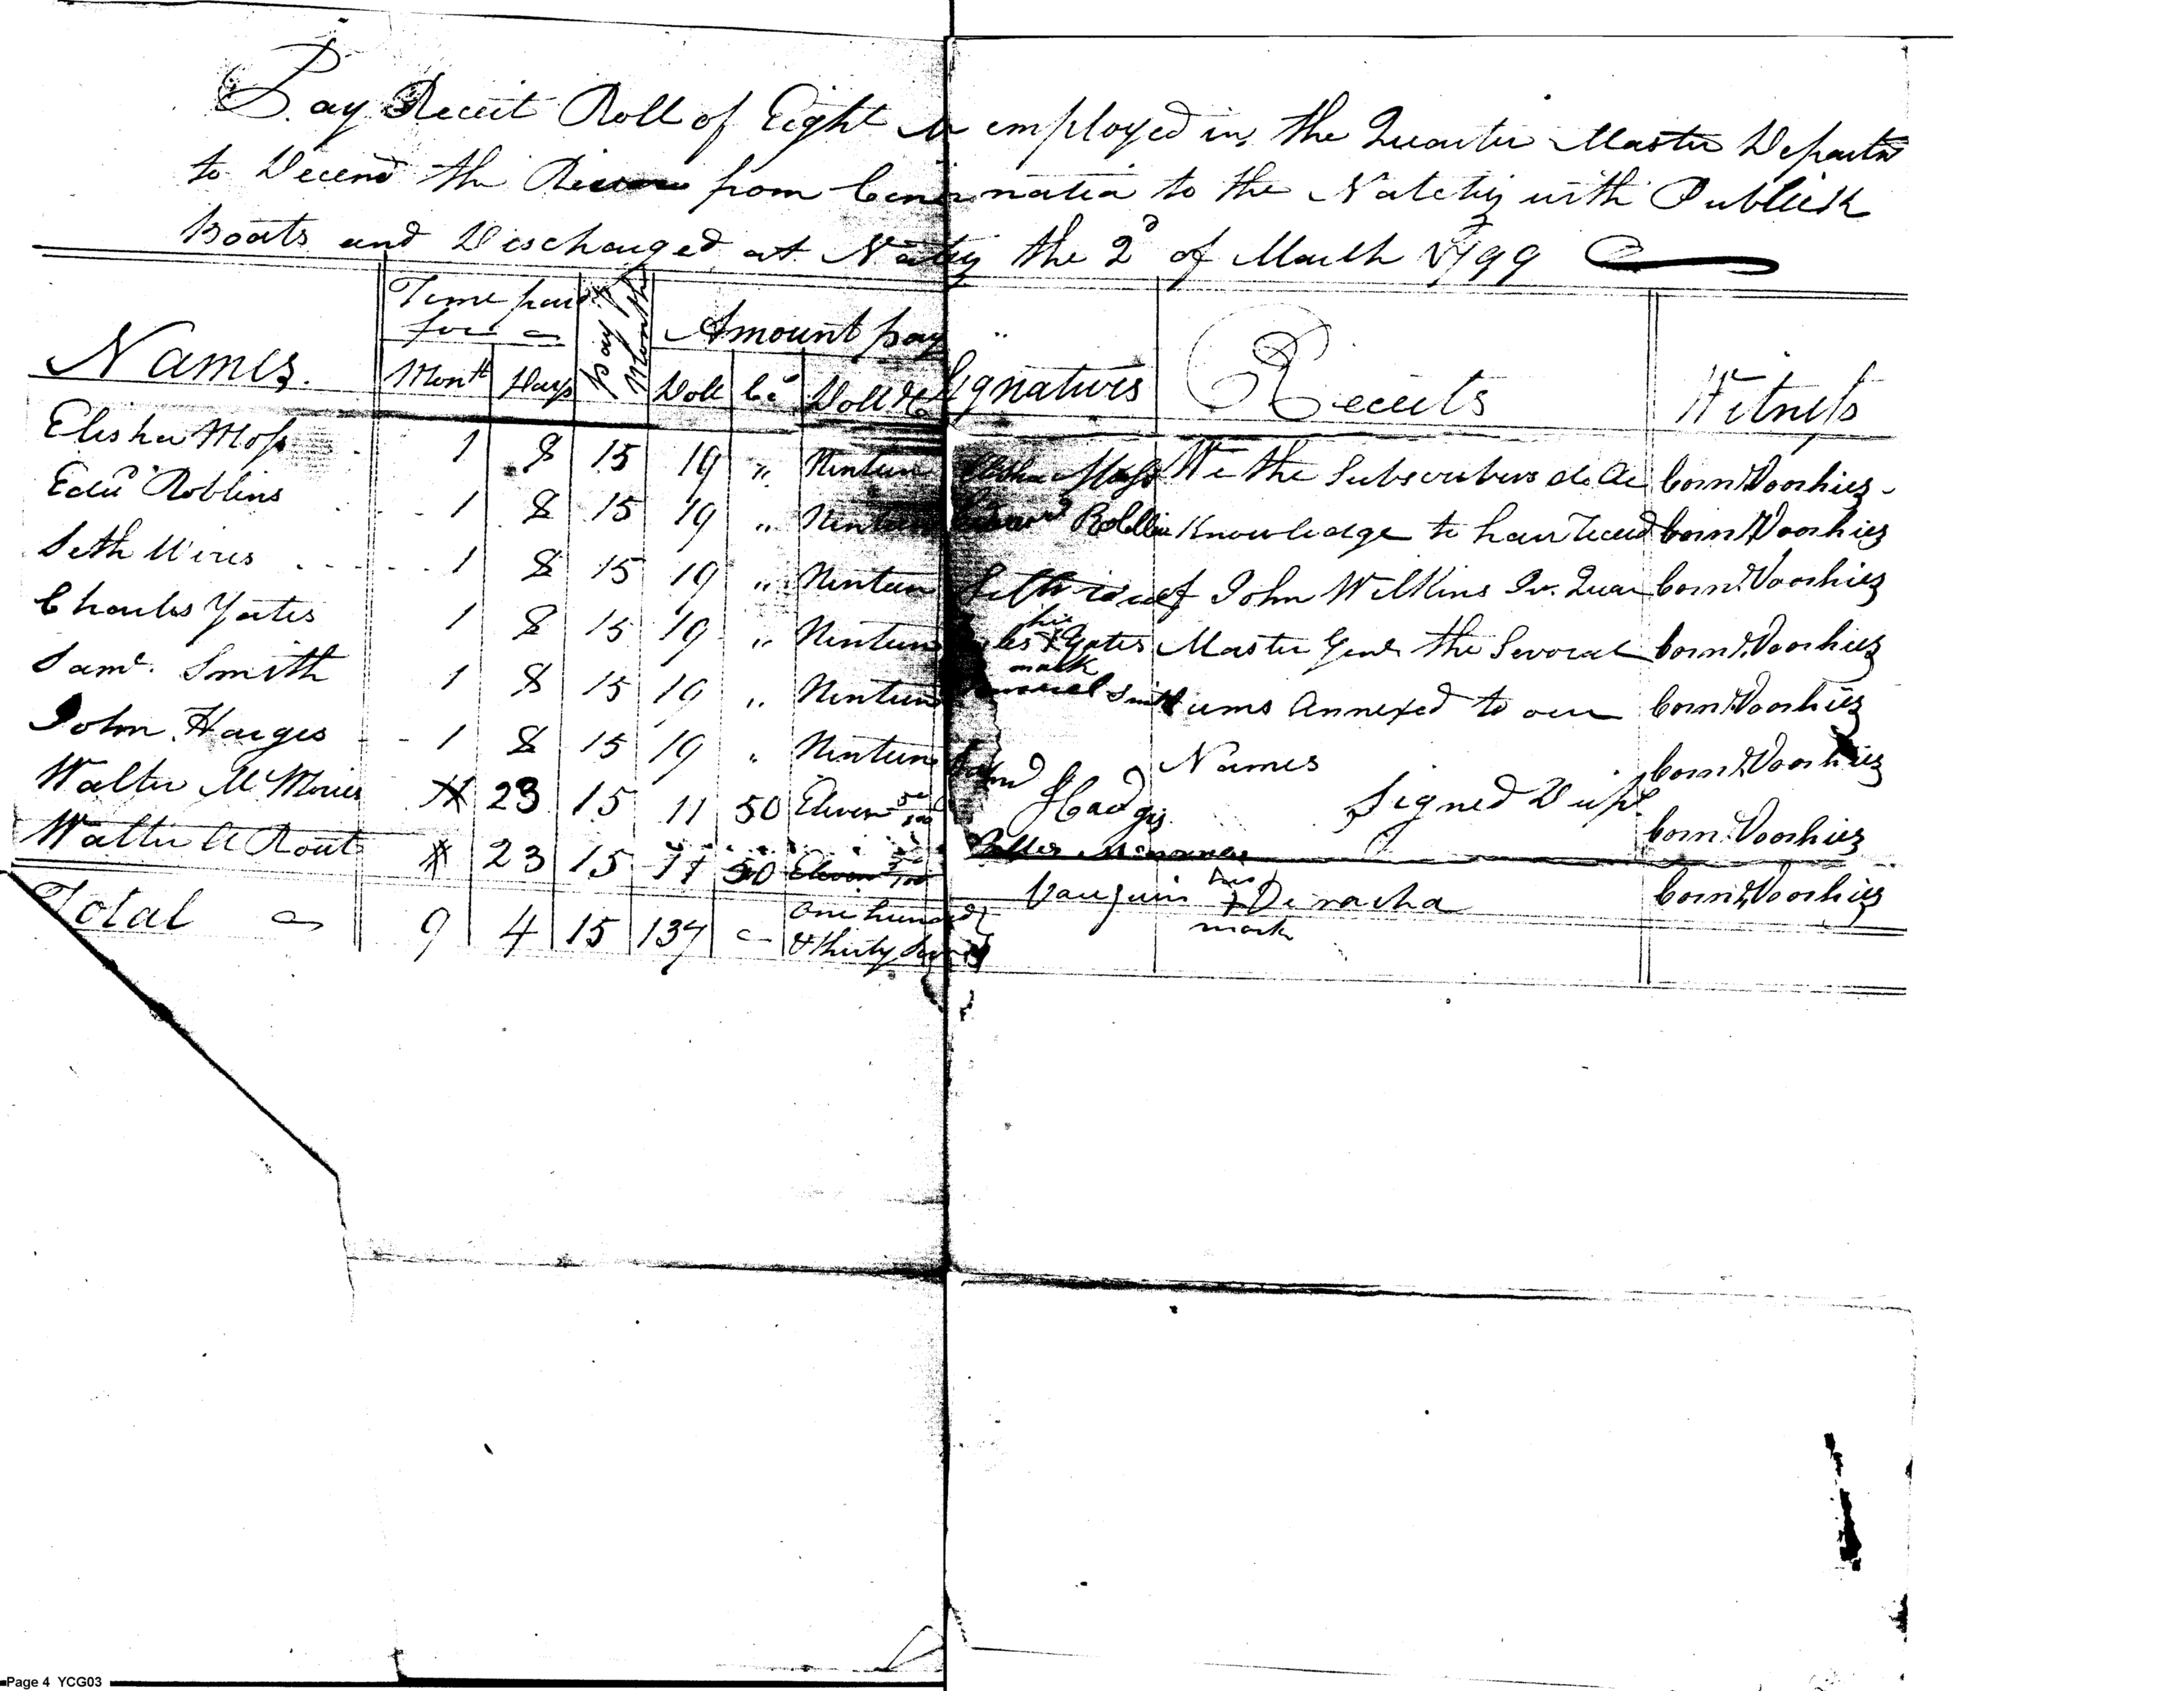 Pay Receit Roll of Eight M employed in the Quarter Master Departm
to Decend the River from Cincinnatia to the Natchiz with Publick
Boats and Discharged at Natchiz the 2d of March 1799
Names. Time paid for Pay pr Month Amount pay Signatures Receits Witness
Month Days Doll Cs Doll &c
Elisha Moss 1 8 15 19 " Ninteen Elisha Moss We the Subscribers do Ac Corn. Voorhies
Edwd Roblins 1 8 15 19 " Ninteen Roblin Knowledge to have Received Corn. Voorhies
Seth Wires 1 8 15 19 " Ninteen Seth of John Wilkins Jr. Quar Corn. Voorhies
Charles Yates 1 8 15 19 " Ninteen les his x mark Yates Master Genl the Several Corn. Voorhies
Saml. Smith 1 8 15 19 " Ninteen Samuel Smith Sums Annexed to our Corn. Voorhies
John Harges 1 8 15 19 " Ninteen John Hadgis Names Corn. Voorhies
Walter McMories 23 15 11 50 Eleven 50/100 Signed Dupl Corn. Voorhies
Walter A Rout 23 15 11 50 Eleven 50/100 his x mark Corn. Voorhies
Total 9 4 15 137 One hundred
& thirty Seven
Page 4 YCG03